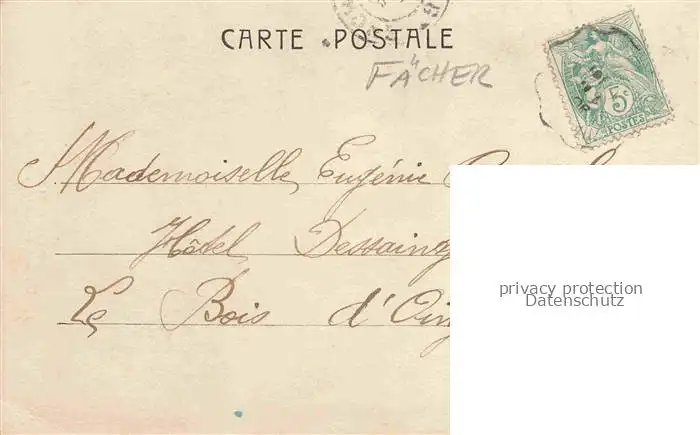 CARTE POSTALE
FÄCHER
5c
POSTES
Mademoiselle Eugénie
Hôtel Dessaing
Le Bois d'Oing
privacy protection
Datenschutz